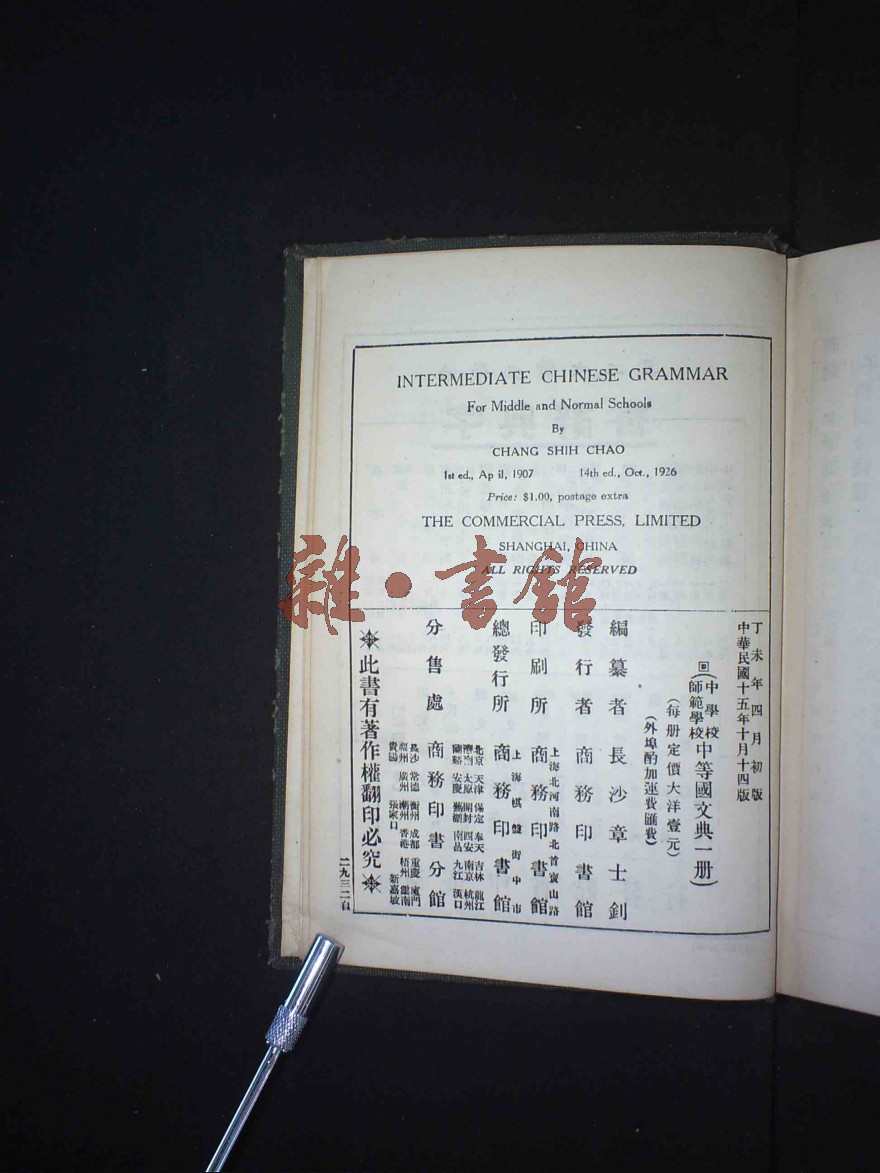 INTERMEDIATE CHINESE GRAMMAR
For Middle and Normal Schools
By
CHANG SHIH CHAO
1st ed., Ap il, 1907 14th ed., Oct., 1926
Price: $1.00, postage extra
THE COMMERCIAL PRESS, LIMITED
SHANGHAI, CHINA
ALL RIGHTS RESERVED
雜·書館
丁未年四月初版
中華民國十五年十月十四版
回(中學校師範學校中等國文典一册)
(每册定價大洋壹元)
(外埠酌加運費匯費)
編纂者 長沙章士釗
發行者 商務印書館
印刷所 上海北河南路北首寶山路 商務印書館
總發行所 上海棋盤街中市 商務印書館
分售處 商務印書分館
北京 天津 保定 奉天 吉林 龍江
濟南 太原 開封 西安 南京 杭州
蘭谿 安慶 蕪湖 南昌 九江 漢口
長沙 常德 衡州 成都 重慶 廈門
福州 廣州 潮州 香港 梧州 雲南
貴陽 張家口 新嘉坡
此書有著作權翻印必究
二九三二自